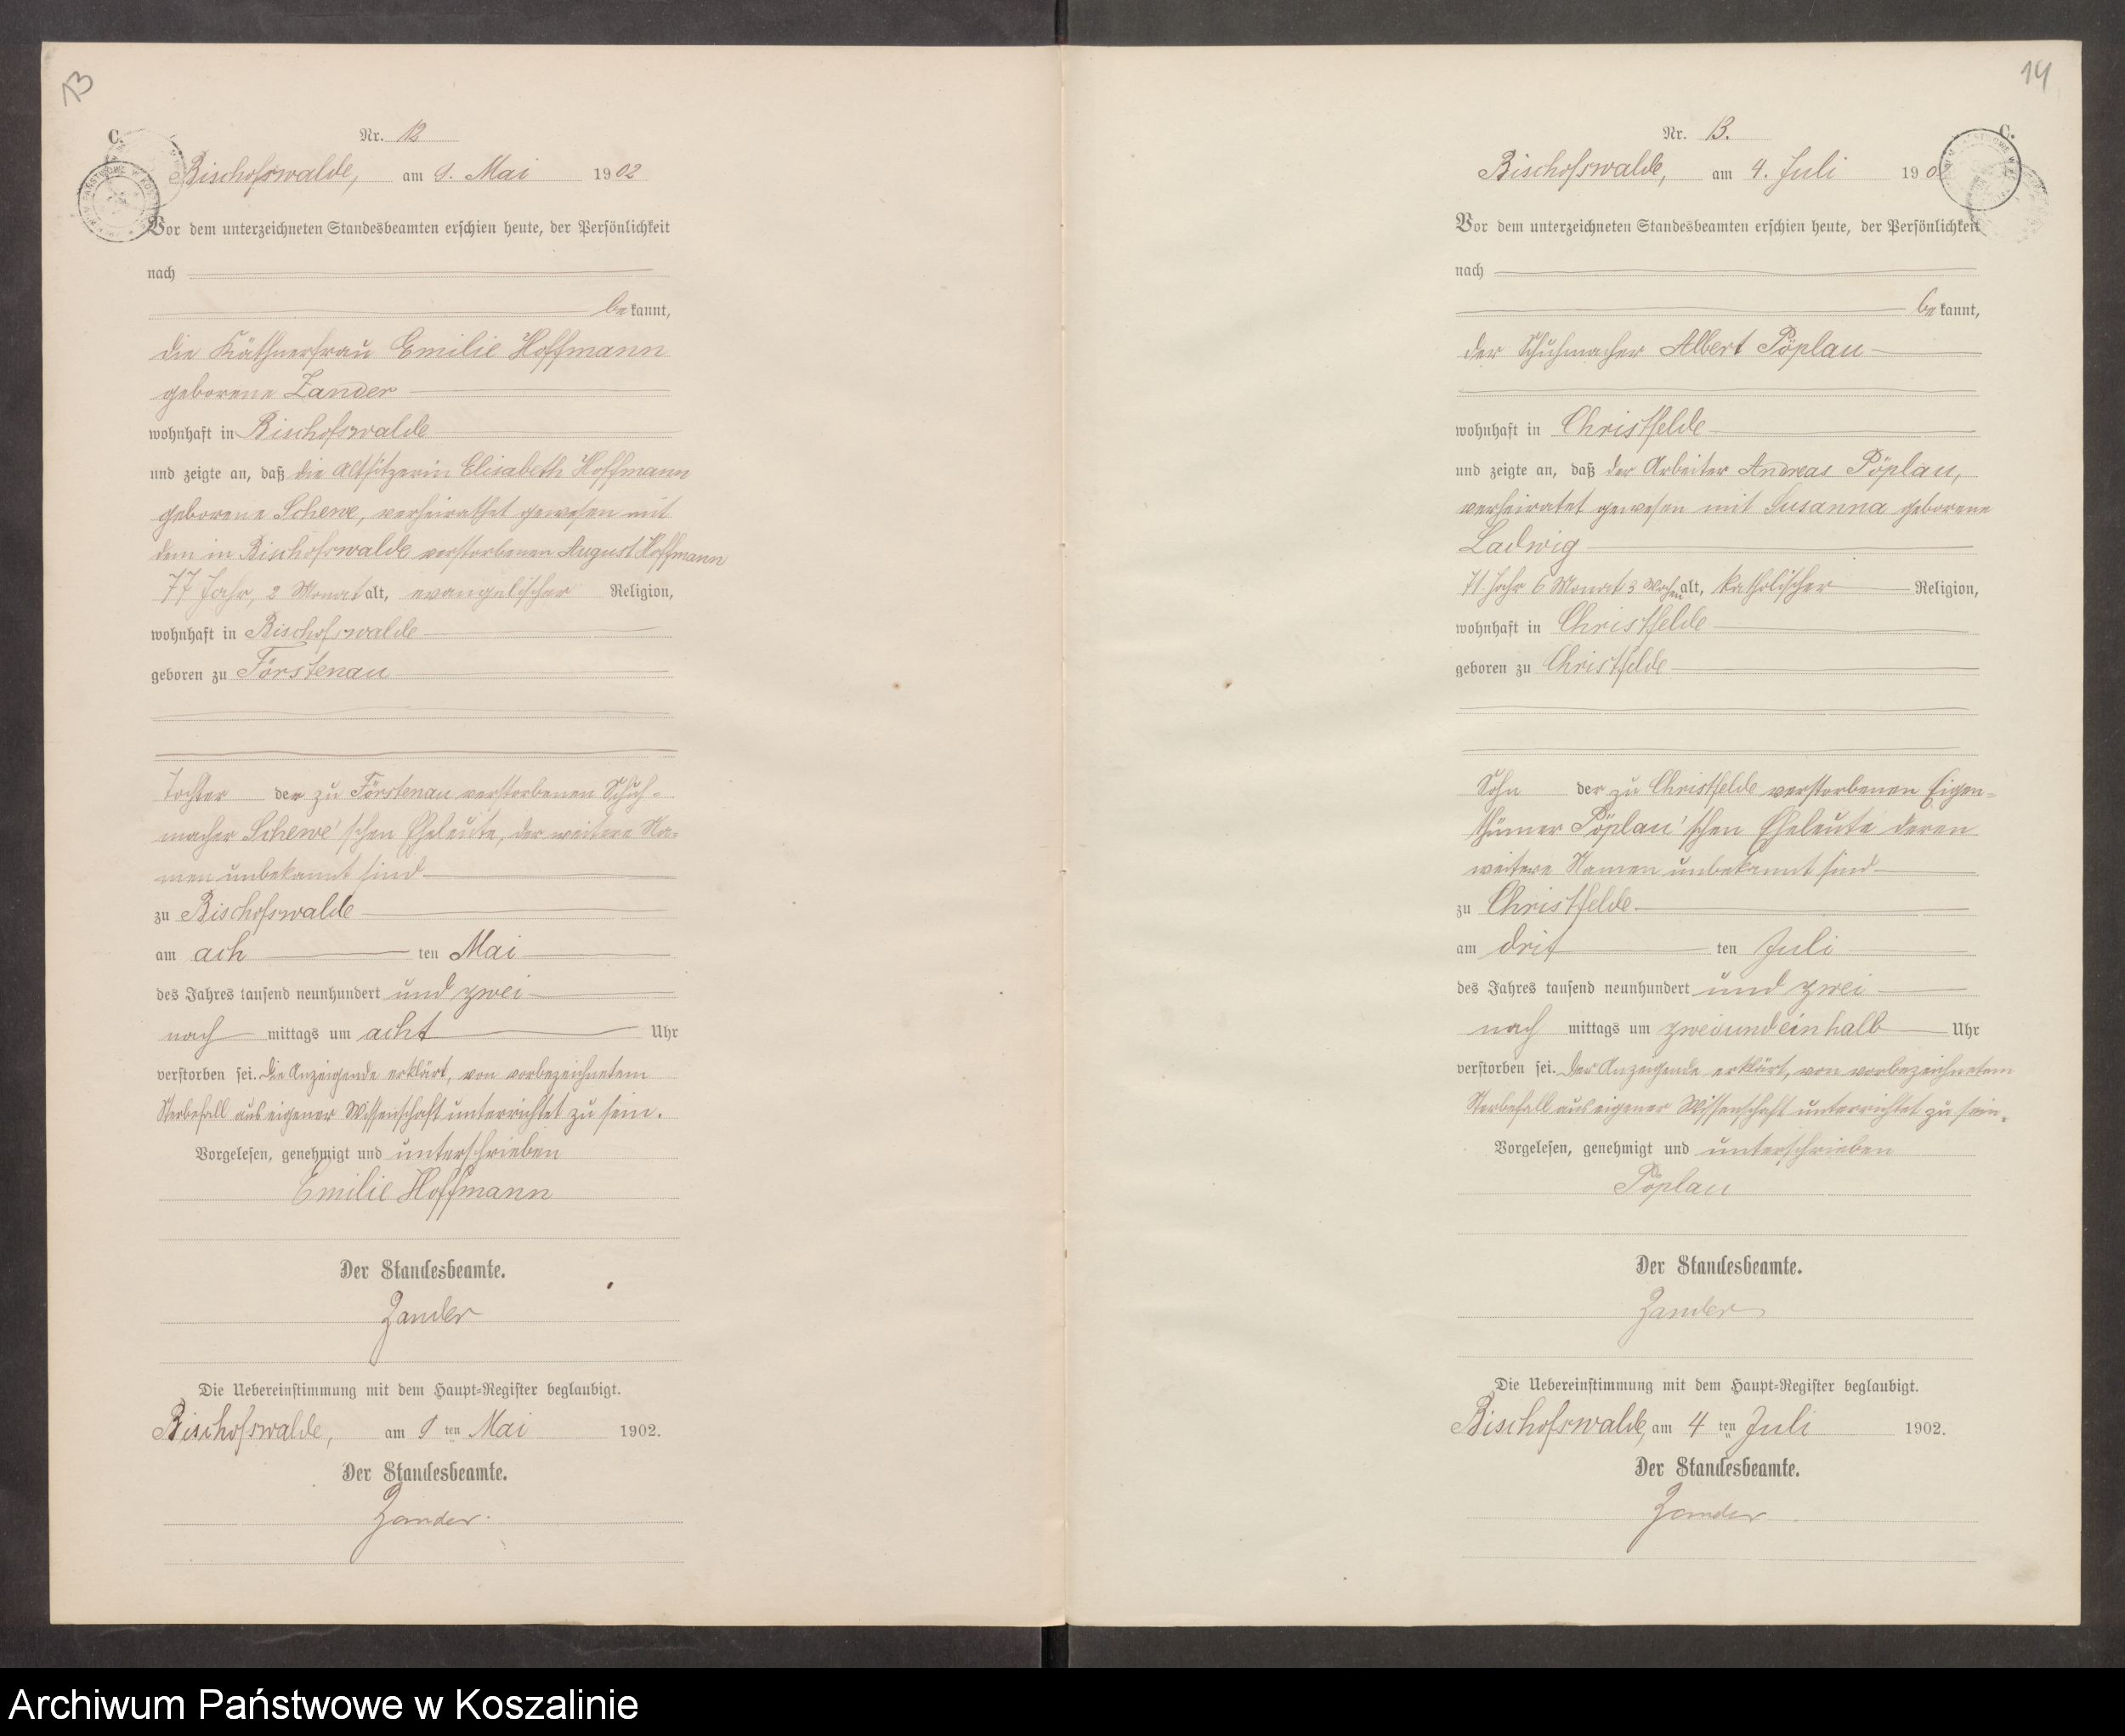 13
C.
Nr. 12
Bischofswalde, am 9. Mai 1902
Vor dem unterzeichneten Standesbeamten erschien heute, der Persönlichkeit
nach
bekannt,
die Käthnerfrau Emilie Hoffmann
geborene Zander
wohnhaft in Bischofswalde
und zeigte an, daß die Altsitzerin Elisabeth Hoffmann
geborene Schewe, verheirathet gewesen mit
dem in Bischofswalde verstorbenen August Hoffmann
77 Jahr, 2 Monat alt, evangelischer Religion,
wohnhaft in Bischofswalde
geboren zu Förstenau
Tochter der zu Förstenau verstorbenen Schuh-
macher Schewe'schen Eheleute, der weitere Na-
men unbekannt sind
zu Bischofswalde
am ach ten Mai
des Jahres tausend neunhundert und zwei
nach mittags um acht Uhr
verstorben sei. Die Anzeigende erklärt, von vorbezeichnetem
Sterbefall aus eigener Wissenschaft unterrichtet zu sein.
Vorgelesen, genehmigt und unterschrieben
Emilie Hoffmann
Der Standesbeamte.
Zander
Die Uebereinstimmung mit dem Haupt-Register beglaubigt.
Bischofswalde, am 9 ten Mai 1902.
Der Standesbeamte.
Zander.
14
C.
Nr. 13.
Bischofswalde, am 4. Juli 1902
Vor dem unterzeichneten Standesbeamten erschien heute, der Persönlichkeit
nach
bekannt,
der Schuhmacher Albert Pöplau
wohnhaft in Christfelde
und zeigte an, daß der Arbeiter Andreas Pöplau,
verheiratet gewesen mit Susanna geborene
Ladwig
71 Jahr 6 Monat 3 Wochen alt, katholischer Religion,
wohnhaft in Christfelde
geboren zu Christfelde
Sohn der zu Christfelde verstorbenen Eigen-
thümer Pöplau'schen Eheleute deren
weitere Namen unbekannt sind
zu Christfelde
am drit ten Juli
des Jahres tausend neunhundert und zwei
nach mittags um zweiundeinhalb Uhr
verstorben sei. Der Anzeigende erklärt, von vorbezeichnetem
Sterbefall aus eigener Wissenschaft unterrichtet zu sein.
Vorgelesen, genehmigt und unterschrieben
Pöplau
Der Standesbeamte.
Zander
Die Uebereinstimmung mit dem Haupt-Register beglaubigt.
Bischofswalde, am 4 ten Juli 1902.
Der Standesbeamte.
Zander
Archiwum Państwowe w Koszalinie